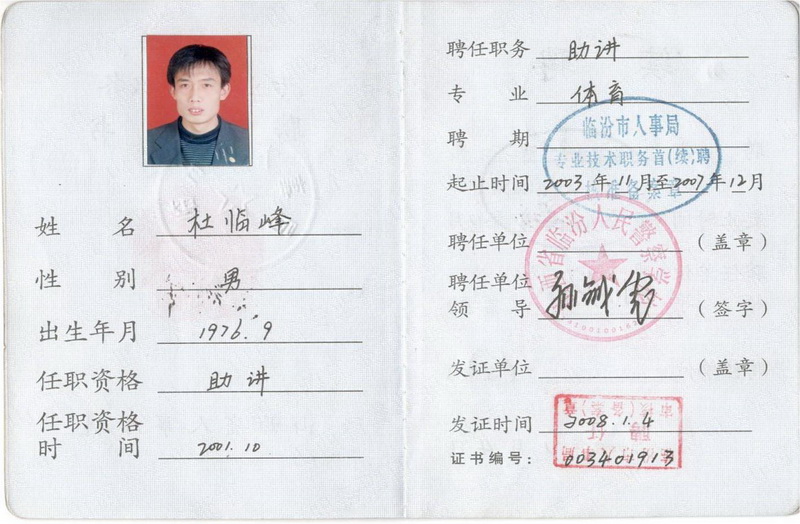 姓名 杜临峰
性别 男
出生年月 1976.9
任职资格 助讲
任职资格
时间 2001.10
聘任职务 助讲
专业 体育
聘期
临汾市人事局
专业技术职务首(续)聘
准备案章
起止时间 2003年11月至2007年12月
聘任单位 (盖章)
西省临汾人民警察学
聘任单位
领导 (签字)
发证单位 (盖章)
发证时间 2008.1.4
证书编号: 003401913